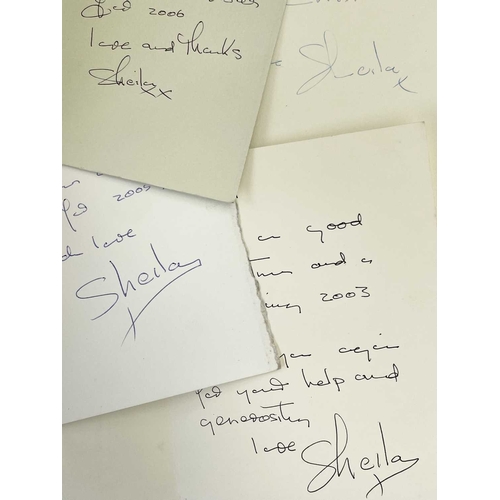 for 2006
love and thanks
Sheila xx
Sheila x
for 2005
love
Sheila
x
good
and a
2003
you again
for your help and
generosity
love
Sheila
x